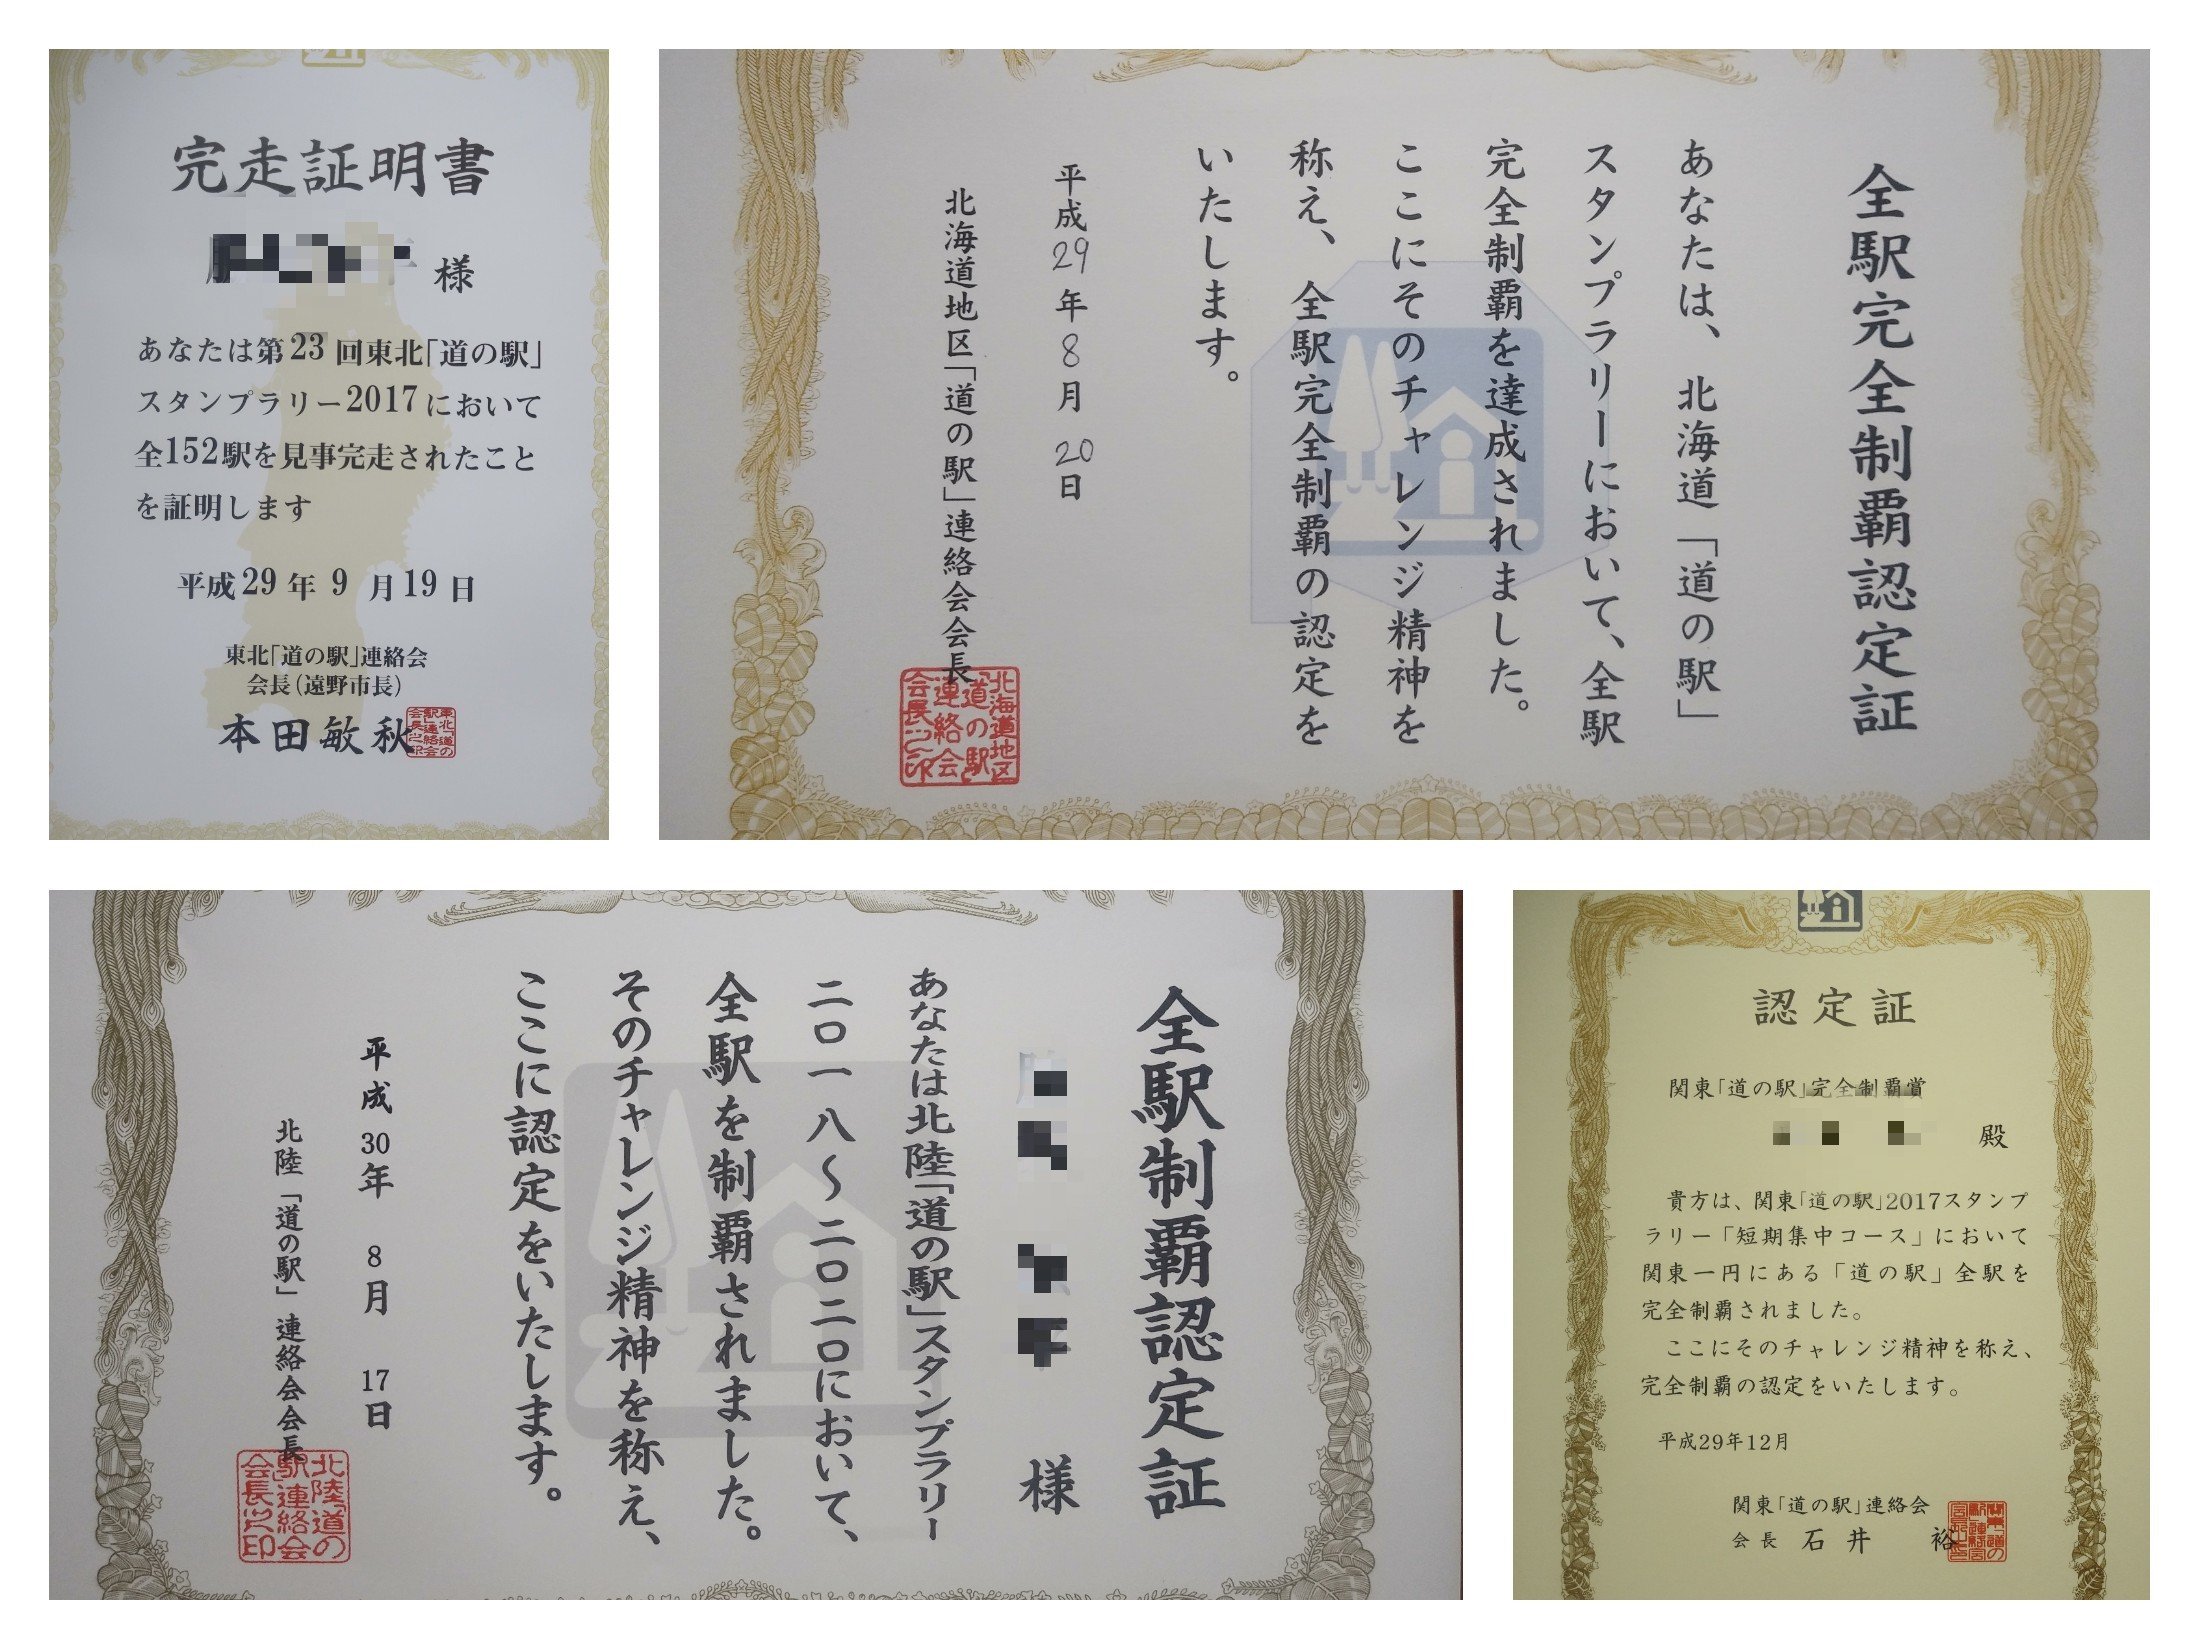 完走証明書
様
あなたは第23回東北「道の駅」
スタンプラリー2017において
全152駅を見事完走されたこと
を証明します
平成29年9月19日
東北「道の駅」連絡会
会長(遠野市長)
本田敏秋
東北「道の駅」連絡会会長之印
全駅完全制覇認定証
あなたは、北海道「道の駅」
スタンプラリーにおいて、全駅
完全制覇を達成されました。
ここにそのチャレンジ精神を
称え、全駅完全制覇の認定を
いたします。
平成29年8月20日
北海道地区「道の駅」連絡会会長
北海道地区「道の駅」連絡会会長之印
全駅制覇認定証
様
あなたは北陸「道の駅」スタンプラリー
二〇一八〜二〇二〇において、
全駅を制覇されました。
そのチャレンジ精神を称え、
ここに認定をいたします。
平成30年8月17日
北陸「道の駅」連絡会会長
北陸「道の駅」連絡会会長之印
認定証
関東「道の駅」完全制覇賞
殿
貴方は、関東「道の駅」2017スタンプ
ラリー「短期集中コース」において
関東一円にある「道の駅」全駅を
完全制覇されました。
ここにそのチャレンジ精神を称え、
完全制覇の認定をいたします。
平成29年12月
関東「道の駅」連絡会
会長 石井 裕